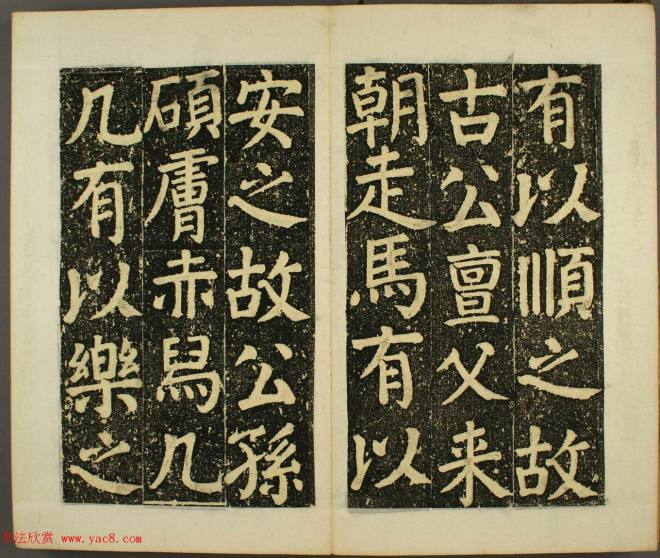 有以順之故
古公亶父来
朝走馬有以
安之故公孫
碩膚赤舄几
几有以樂之
书法欣赏 www.yac8.com